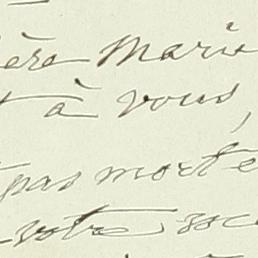 ère Marie
à vous,
pas morte
votre